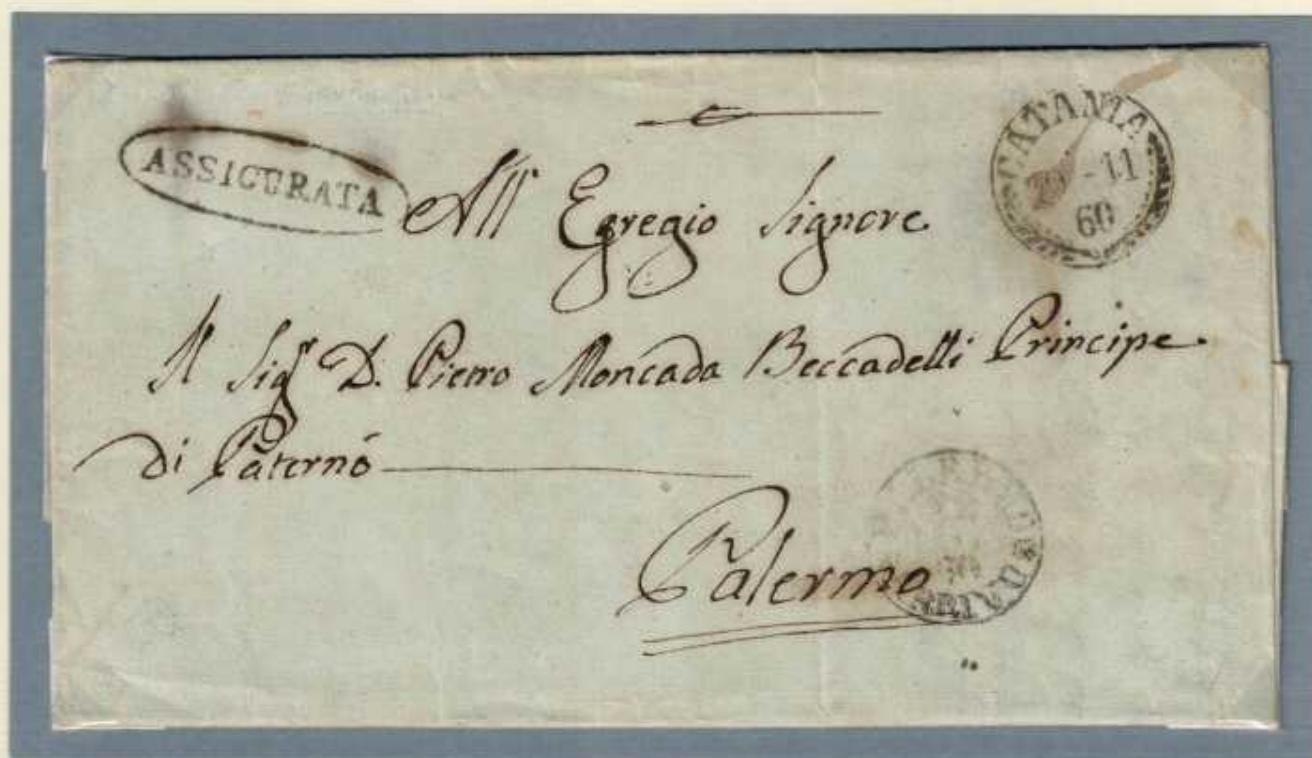 ASSICURATA
CATANIA
-11
60
All Egregio Signore
Il Sigr D. Pietro Moncada Beccadelli Principe
di Paternó
Palermo